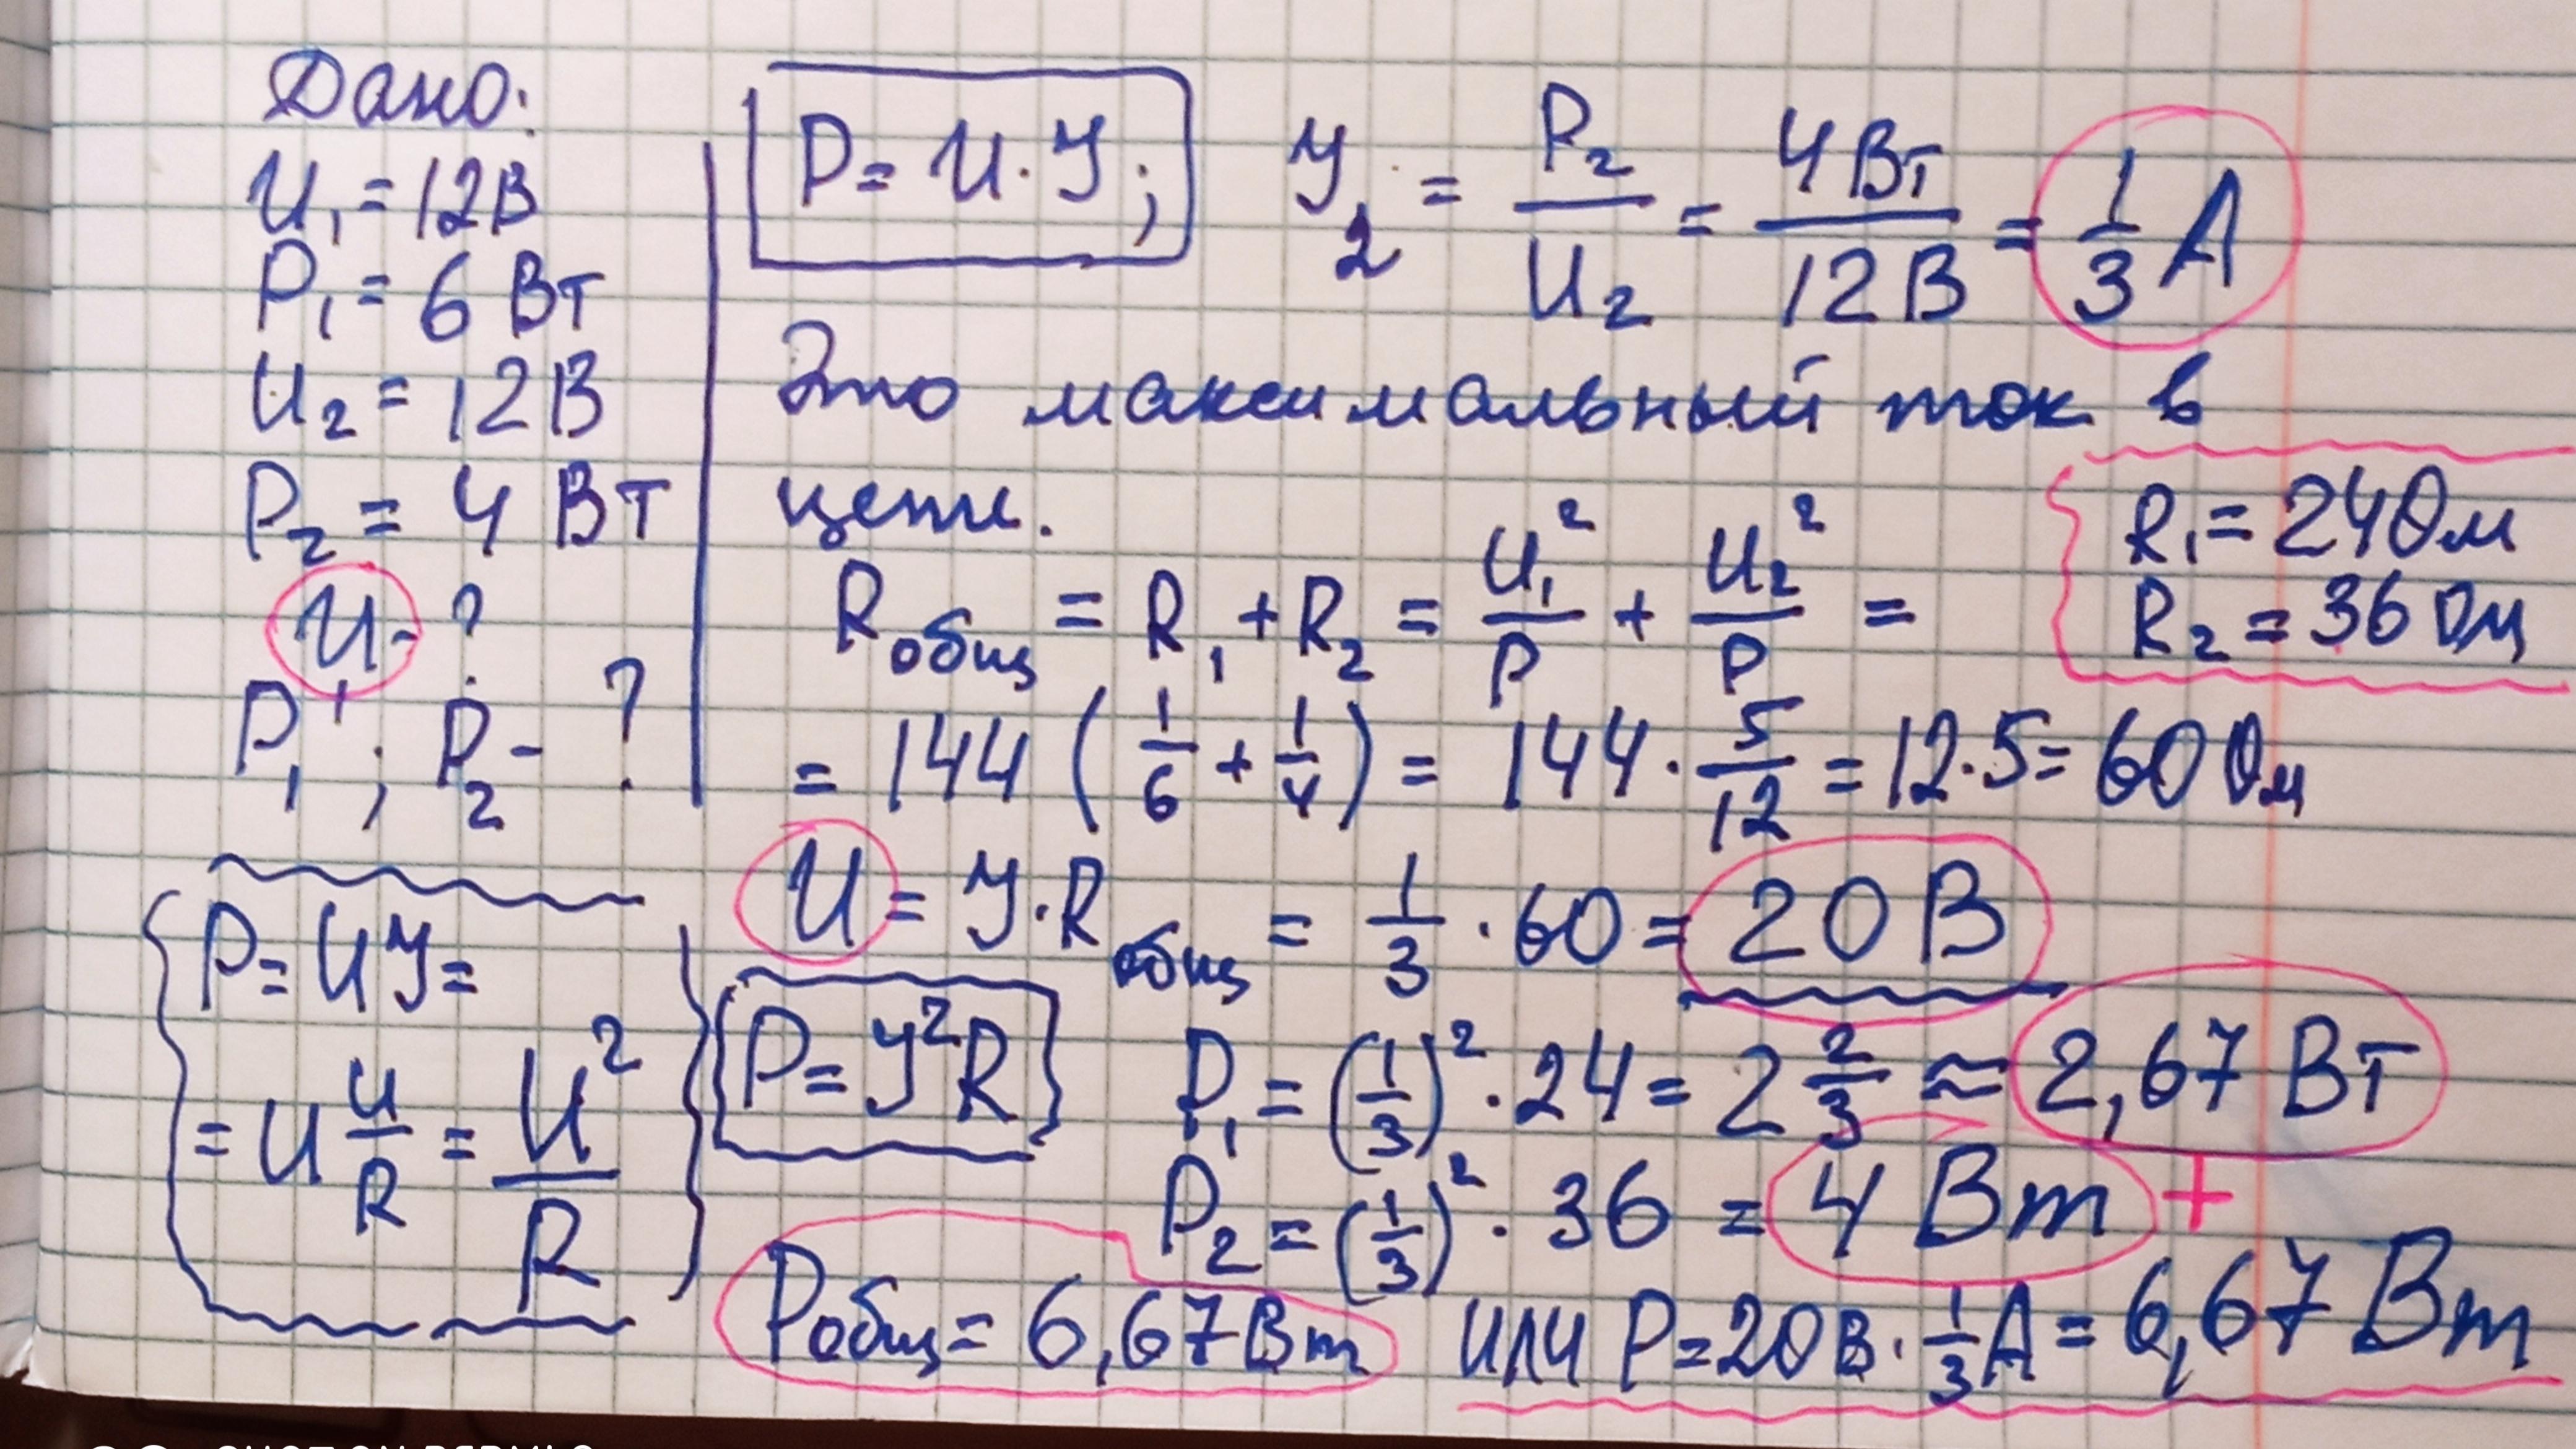 Дано:
U₁ = 12В
P₁ = 6 Вт
U₂ = 12В
P₂ = 4 Вт
U - ?
P₁' ; P₂ - ?
P = UУ =
= U U/R = U²/R
P = U · У ;
У₂ = P₂/U₂ = 4 Вт/12 В = 1/3 А
Это максимальный ток в
цепи.
R₁ = 24 Ом
R₂ = 36 Ом
Rобщ = R₁ + R₂ = U₁²/P + U₂²/P =
= 144 (1/6 + 1/4) = 144 · 5/12 = 12 · 5 = 60 Ом
U = У · Rобщ = 1/3 · 60 = 20 В
P = У²R
P₁ = (1/3)² · 24 = 2 2/3 ≈ 2,67 Вт
P₂ = (1/3)² · 36 = 4 Вт +
Pобщ = 6,67 Вт или P = 20 В · 1/3 А = 6,67 Вт